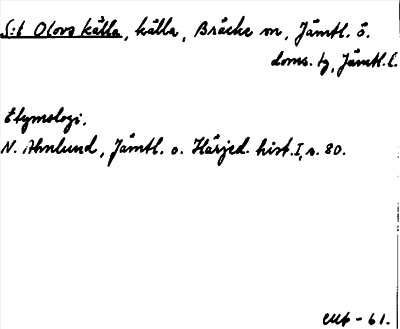 S:t Olovs källa, källa, Bräcke sn, Jämtl. ö.
doms. tg, Jämtl. l.
Etymologi.
N. Ahnlund, Jämtl. o. Härjed. hist. I, s. 80.
-61.